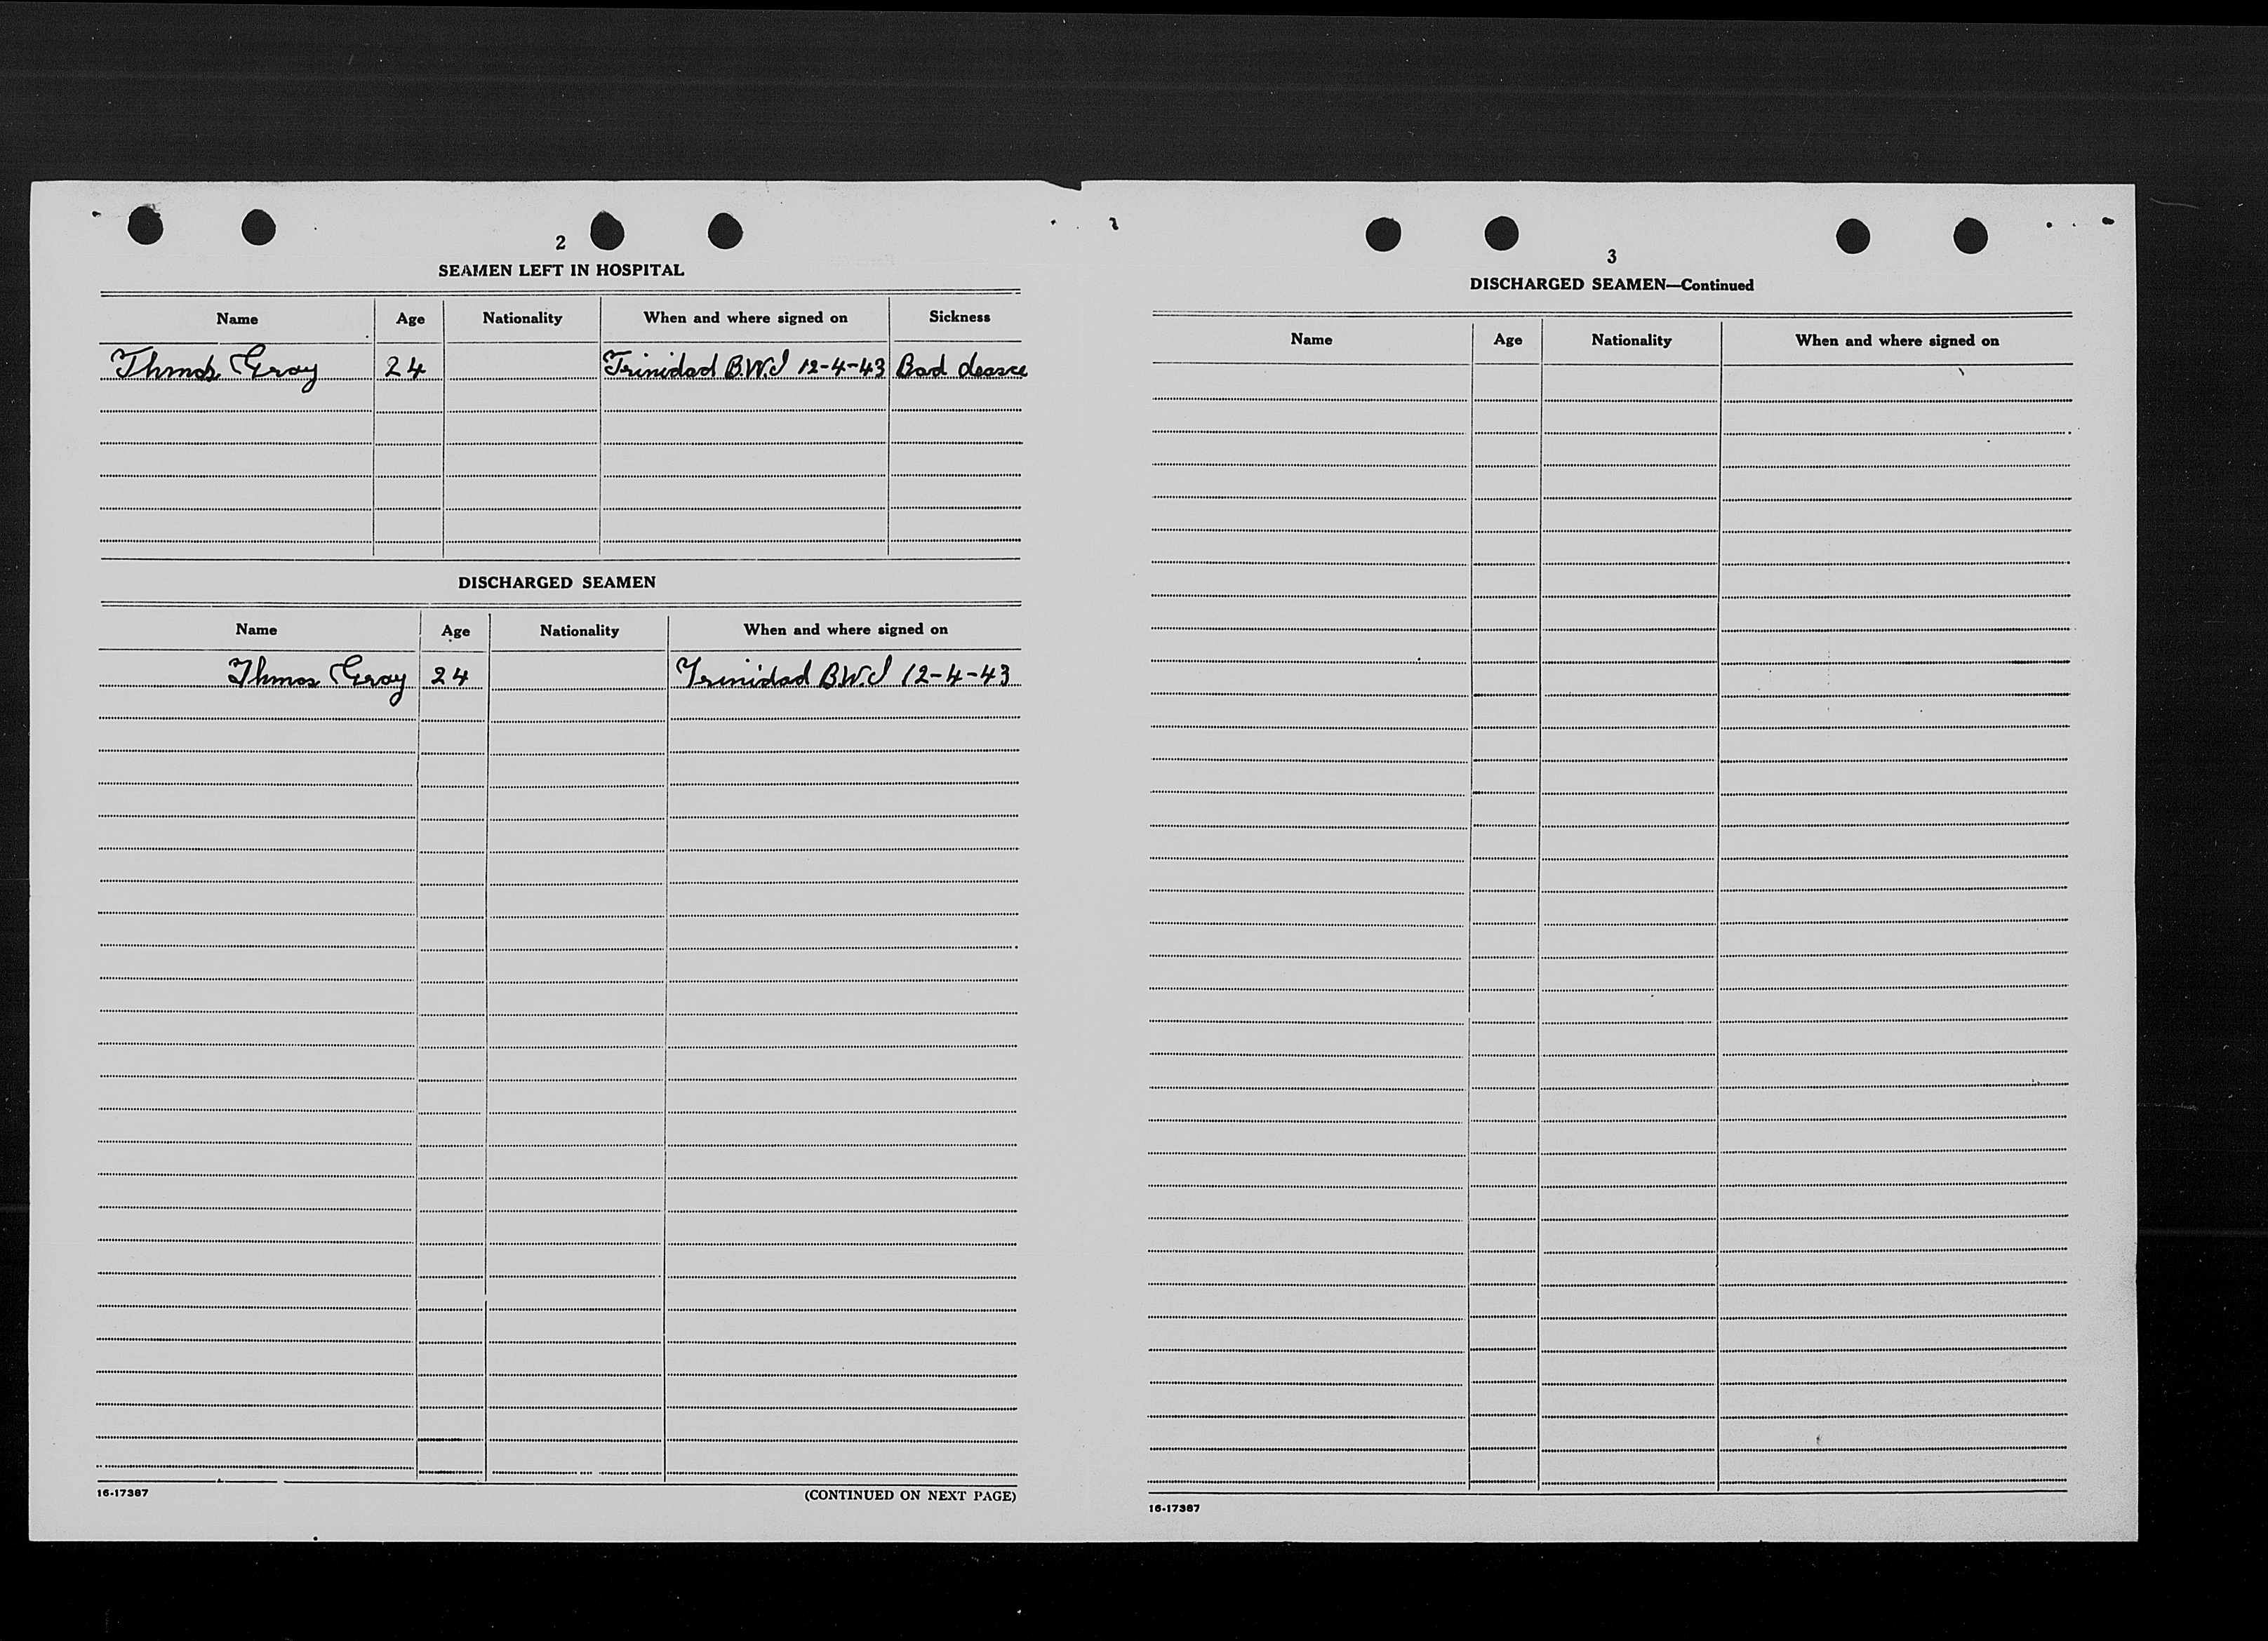 2
SEAMEN LEFT IN HOSPITAL
Name Age Nationality When and where signed on Sickness
Thmos Gray 24 Trinidad B.W.I 12-4-43 Bad desace
DISCHARGED SEAMEN
Name Age Nationality When and where signed on
Thmos Gray 24 Trinidad B.W.I 12-4-43
16-17387 (CONTINUED ON NEXT PAGE)
3
DISCHARGED SEAMEN—Continued
Name Age Nationality When and where signed on
16-17387